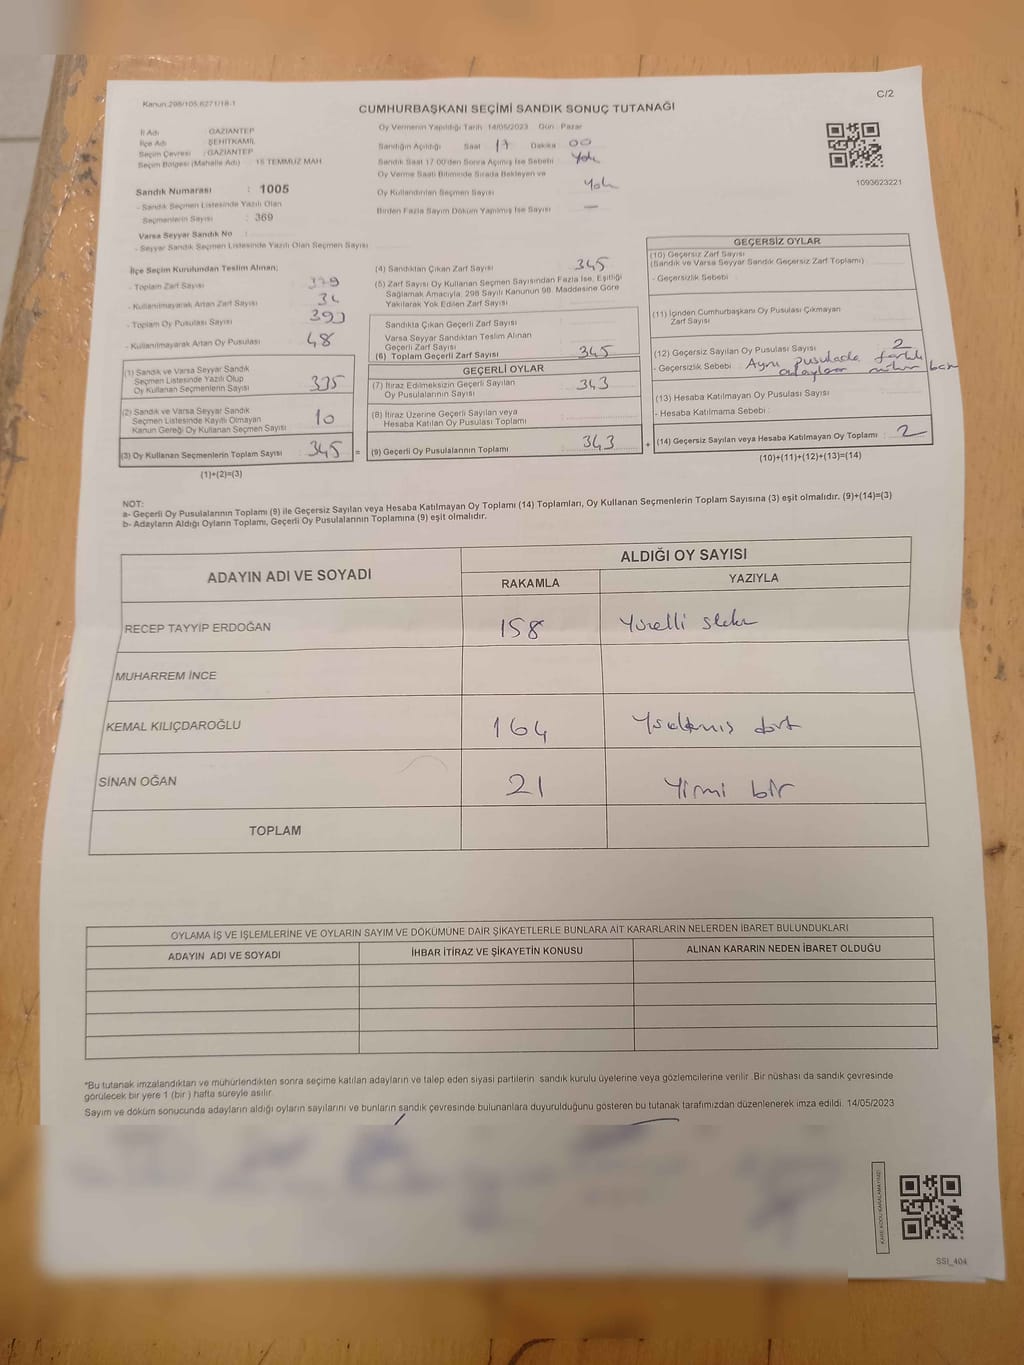 Kanun:298/105,6271/18-1
C/2
CUMHURBAŞKANI SEÇİMİ SANDIK SONUÇ TUTANAĞI
İl Adı : GAZİANTEP
İlçe Adı : ŞEHİTKAMİL
Seçim Çevresi : GAZİANTEP
Seçim Bölgesi (Mahalle Adı) 15 TEMMUZ MAH.
Sandık Numarası : 1005
- Sandık Seçmen Listesinde Yazılı Olan
Seçmenlerin Sayısı : 369
Varsa Seyyar Sandık No :
- Seyyar Sandık Seçmen Listesinde Yazılı Olan Seçmen Sayısı
Oy Vermenin Yapıldığı Tarih 14/05/2023 Gün : Pazar
Sandığın Açıldığı Saat 17 Dakika 00
Sandık Saat 17:00'den Sonra Açılmış İse Sebebi : Yok
Oy Verme Saati Bitiminde Sırada Bekleyen ve
Oy Kullandırılan Seçmen Sayısı Yok
Birden Fazla Sayım Döküm Yapılmış İse Sayısı —
1093623221
İlçe Seçim Kurulundan Teslim Alınan;
- Toplam Zarf Sayısı
- Kullanılmayarak Artan Zarf Sayısı
- Toplam Oy Pusulası Sayısı
- Kullanılmayarak Artan Oy Pusulası 48
(1) Sandık ve Varsa Seyyar Sandık
Seçmen Listesinde Yazılı Olup
Oy Kullanan Seçmenlerin Sayısı 335
(2) Sandık ve Varsa Seyyar Sandık
Seçmen Listesinde Kayıtlı Olmayan
Kanun Gereği Oy Kullanan Seçmen Sayısı 10
(3) Oy Kullanan Seçmenlerin Toplam Sayısı 345 =
(1)+(2)=(3)
(4) Sandıktan Çıkan Zarf Sayısı 345
(5) Zarf Sayısı Oy Kullanan Seçmen Sayısından Fazla İse, Eşitliği
Sağlamak Amacıyla, 298 Sayılı Kanunun 98. Maddesine Göre
Yakılarak Yok Edilen Zarf Sayısı
Sandıkta Çıkan Geçerli Zarf Sayısı
Varsa Seyyar Sandıktan Teslim Alınan
Geçerli Zarf Sayısı
(6) Toplam Geçerli Zarf Sayısı 345
GEÇERLİ OYLAR
(7) İtiraz Edilmeksizin Geçerli Sayılan
Oy Pusulalarının Sayısı 343
(8) İtiraz Üzerine Geçerli Sayılan veya
Hesaba Katılan Oy Pusulası Toplamı
(9) Geçerli Oy Pusulalarının Toplamı 343 +
GEÇERSİZ OYLAR
(10) Geçersiz Zarf Sayısı
(Sandık ve Varsa Seyyar Sandık Geçersiz Zarf Toplamı)
- Geçersizlik Sebebi
(11) İçinden Cumhurbaşkanı Oy Pusulası Çıkmayan
Zarf Sayısı
(12) Geçersiz Sayılan Oy Pusulası Sayısı 2
- Geçersizlik Sebebi : Aynı pusulada farklı
adaylara
(13) Hesaba Katılmayan Oy Pusulası Sayısı
- Hesaba Katılmama Sebebi :
(14) Geçersiz Sayılan veya Hesaba Katılmayan Oy Toplamı : 2
(10)+(11)+(12)+(13)=(14)
NOT:
a- Geçerli Oy Pusulalarının Toplamı (9) ile Geçersiz Sayılan veya Hesaba Katılmayan Oy Toplamı (14) Toplamları, Oy Kullanan Seçmenlerin Toplam Sayısına (3) eşit olmalıdır. (9)+(14)=(3)
b- Adayların Aldığı Oyların Toplamı, Geçerli Oy Pusulalarının Toplamına (9) eşit olmalıdır.
ADAYIN ADI VE SOYADI
ALDIĞI OY SAYISI
RAKAMLA YAZIYLA
RECEP TAYYİP ERDOĞAN 158
MUHARREM İNCE
KEMAL KILIÇDAROĞLU 164
SİNAN OĞAN 21 Yirmi bir
TOPLAM
OYLAMA İŞ VE İŞLEMLERİNE VE OYLARIN SAYIM VE DÖKÜMÜNE DAİR ŞİKAYETLERLE BUNLARA AİT KARARLARIN NELERDEN İBARET BULUNDUKLARI
ADAYIN ADI VE SOYADI İHBAR İTİRAZ VE ŞİKAYETİN KONUSU ALINAN KARARIN NEDEN İBARET OLDUĞU
*Bu tutanak imzalandıktan ve mühürlendikten sonra seçime katılan adayların ve talep eden siyasi partilerin sandık kurulu üyelerine veya gözlemcilerine verilir. Bir nüshası da sandık çevresinde
görülecek bir yere 1 (bir) hafta süreyle asılır.
Sayım ve döküm sonucunda adayların aldığı oyların sayılarını ve bunların sandık çevresinde bulunanlara duyurulduğunu gösteren bu tutanak tarafımızdan düzenlenerek imza edildi. 14/05/2023
SSI_404